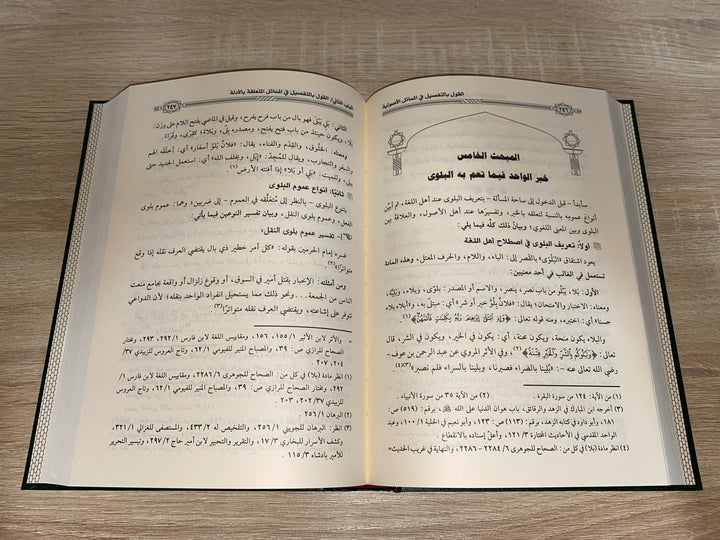 القول بالتفصيل في المسائل الأصولية
٢٤٦
المبحث الخامس
خبر الواحد فيما تعم به البلوى
سأبدأ - قبل الدخول إلى ساحة المسألة - بتعريف البلوى عند أهل اللغة، ثم أبيّن
أنواع عمومه بالنسبة لتعلقه بالخبر، وتفسيرها عند أهل الأصول، والعلاقة بين
البلوى وبين المعنى اللغوي؛ وبيان ذلك كله فيما يلي:
أولاً: تعريف البلوى في اصطلاح أهل اللغة
يعود اشتقاق «البَلْوَى» بالقصر إلى: الباء، واللام، والحرف المعتل، وهذه المادة
تستعمل في الغالب في أحد معنيين:
الأول: بَلَا، يَبْلُو من باب نصر، ينصر، والاسم أو المصدر: بلوى، وبلاء، وبَلِيَّة،
ومعناه: الاختبار والامتحان؛ يقال: «فلانٌ بِلْوُ خير أو شر» أي: مبتلىً به، و«أبلاه بلاء
حسناً» أي: اختبره، ومنه قوله تعالى: ﴿وَإِذِ ابْتَلَىٰ إِبْرَاهِيمَ رَبُّهُ بِكَلِمَاتٍ فَأَتَمَّهُنَّ﴾(١).
والبلاء يكون منحة، ويكون محنة، أي: يكون في الخير، ويكون في الشر، قال
تعالى: ﴿وَنَبْلُوكُم بِالشَّرِّ وَالْخَيْرِ فِتْنَةً﴾(٢)، وفي الأثر المروي عن عبد الرحمن بن عوف -
رضي الله تعالى عنه -: «بُلينا بالضراء فصبرنا، وبلينا بالسراء فلم نصبر»(٣)(٤)
(١) من الآية: ١٢٤ من سورة البقرة. (٢) من الآية ٣٥ من سورة الأنبياء.
(٣) أخرجه ابن المبارك في الزهد والرقائق، باب هوان الدنيا على الله ﷻ، برقم: (٥١٩) ص:
١٨١، وأبو داود في كتابه الزهد، برقم: (١١٣) ص: ١٢٣، وأبو نعيم في الحلية ١/ ١٠٠، وعبد
الواحد المقدسي في الأحاديث المختارة ٣/ ١٢١، وأعلّ إسناده بالانقطاع.
(٤) انظر مادة (بلا) في كل من: الصحاح للجوهري ٦/ ٢٢٨٤ - ٢٢٨٦، والنهاية في غريب الحديث=
الباب الثاني/ القول بالتفصيل في المسائل المتعلقة بالأدلة
٢٤٧
الثاني: بَلِيَ يَبْلَى فهو بال من باب فرح يفرح، وقيل في الماضي بفتح اللام على وزن:
بَلَا، ويكون حينئذ من باب فتح يفتح، ومصدره بِلًى، وبَلَاء؛ كقِرى، وقَراء.
ومعناه: الخُلُوق، والقِدَم والفناء، يقال: «فلانٌ بِلْوُ أسفار» أي: أخلقه الهم
والسفر والتجارب، ويقال للمُجِدِّ: «أَبْلِ، ويخلف الله» أي: استعمل الجديد حتى
يبلى، وللميت: «بَلِيَ أو بَلَا» إذا أفنته الأرض(١).
ثانياً: أنواع عموم البلوى
يتنوع البلوى - بالنظر إلى مُتعلَّقه في العموم - إلى ضربين؛ وهما: عموم بلوى
الفعل، وعموم بلوى النقل، وبيان تفسير النوعين فيما يأتي:
١- تفسير عموم بلوى النقل:
فسره إمام الحرمين بقوله: «كل أمر خطير ذي بال يقتضي العرف نقله إذا وقع
متواتراً»(٢).
ومن أمثلته: الإخبار بقتل أمير في السوق، أو وقوع زلزال أو واقعة جامع منعت
الناس من الجمعة...ونحو ذلك مما يستحيل انفراد الواحد بنقله؛ لأن الدواعي
تتوفر على إشاعته، ويقتضي العرف نقله متواتراً(٣).
= والأثر لابن الأثير ١/ ١٥٥، ١٥٦، ومقاييس اللغة لابن فارس ١/ ٢٩٢، ٢٩٣، ومختار
الصحاح للرازي ص: ٣٩، والمصباح المنير للفيومي ١/ ٦٢، وتاج العروس للزبيدي ٣٧/
٢٠٤، ٢٠٧.
(١) انظر مادة (بلا) في كل من: الصحاح للجوهري ٦/ ٢٢٨٦، ومقاييس اللغة لابن فارس ١/
٢٩٢، ومختار الصحاح للرازي ص: ٣٩، والمصباح المنير للفيومي ١/ ٦٢، وتاج العروس
للزبيدي ٣٧/ ٢٠٢، ٢٠٣.
(٢) البرهان ١/ ٢٥٦.
(٣) انظر: البرهان للجويني ١/ ٢٥٦، والتلخيص له ٢/ ٤٣٣، والمستصفى للغزالي ١/ ٣٢١،
وكشف الأسرار للبخاري ٣/ ١٧، والتقرير والتحبير لابن أمير حاج ٢/ ٢٩٧، وتيسير التحرير
للأمير بادشاه ٣/ ١١٥.